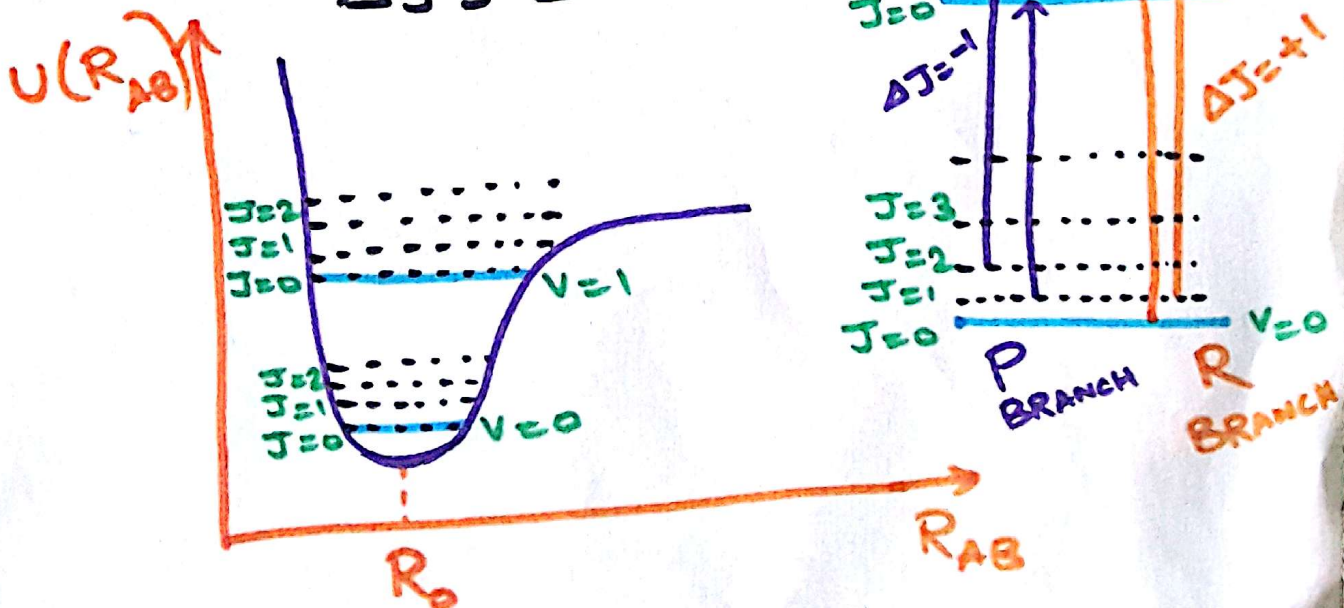 U(R_AB)
J=2
J=1
J=0
V=1
J=2
J=1
J=0
V=0
R₀
R_AB
J=0
ΔJ=-1
ΔJ=+1
J=3
J=2
J=1
J=0
V=0
P
BRANCH
R
BRANCH